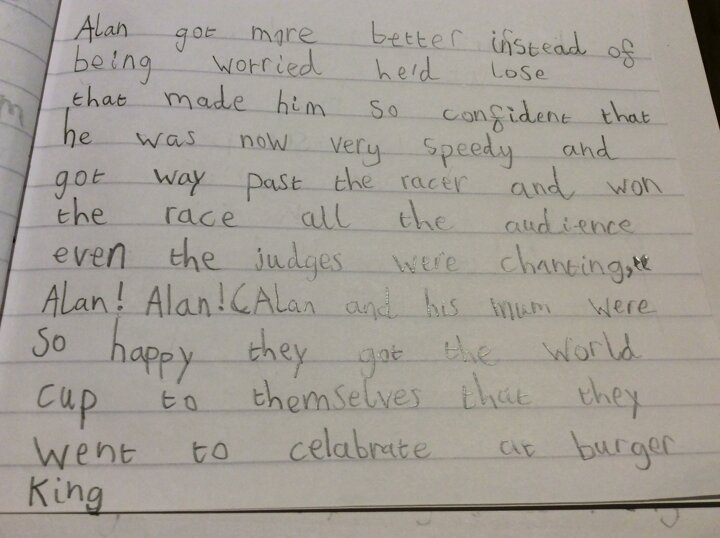 Alan got more better instead of
being worried he'd lose
that made him so confident that
he was now very speedy and
got way past the racer and won
the race all the audience
even the judges were chanting,"
Alan! Alan!(Alan and his mum were
So happy they got the world
cup to themselves that they
went to celabrate at burger
King